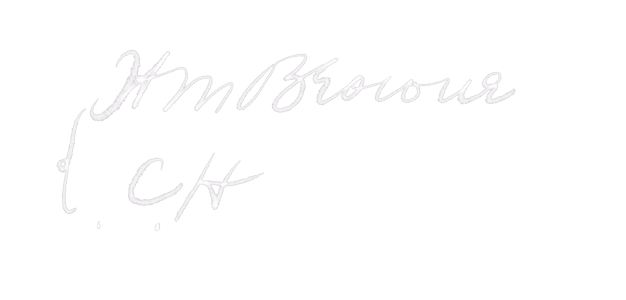 HM Browne
CH